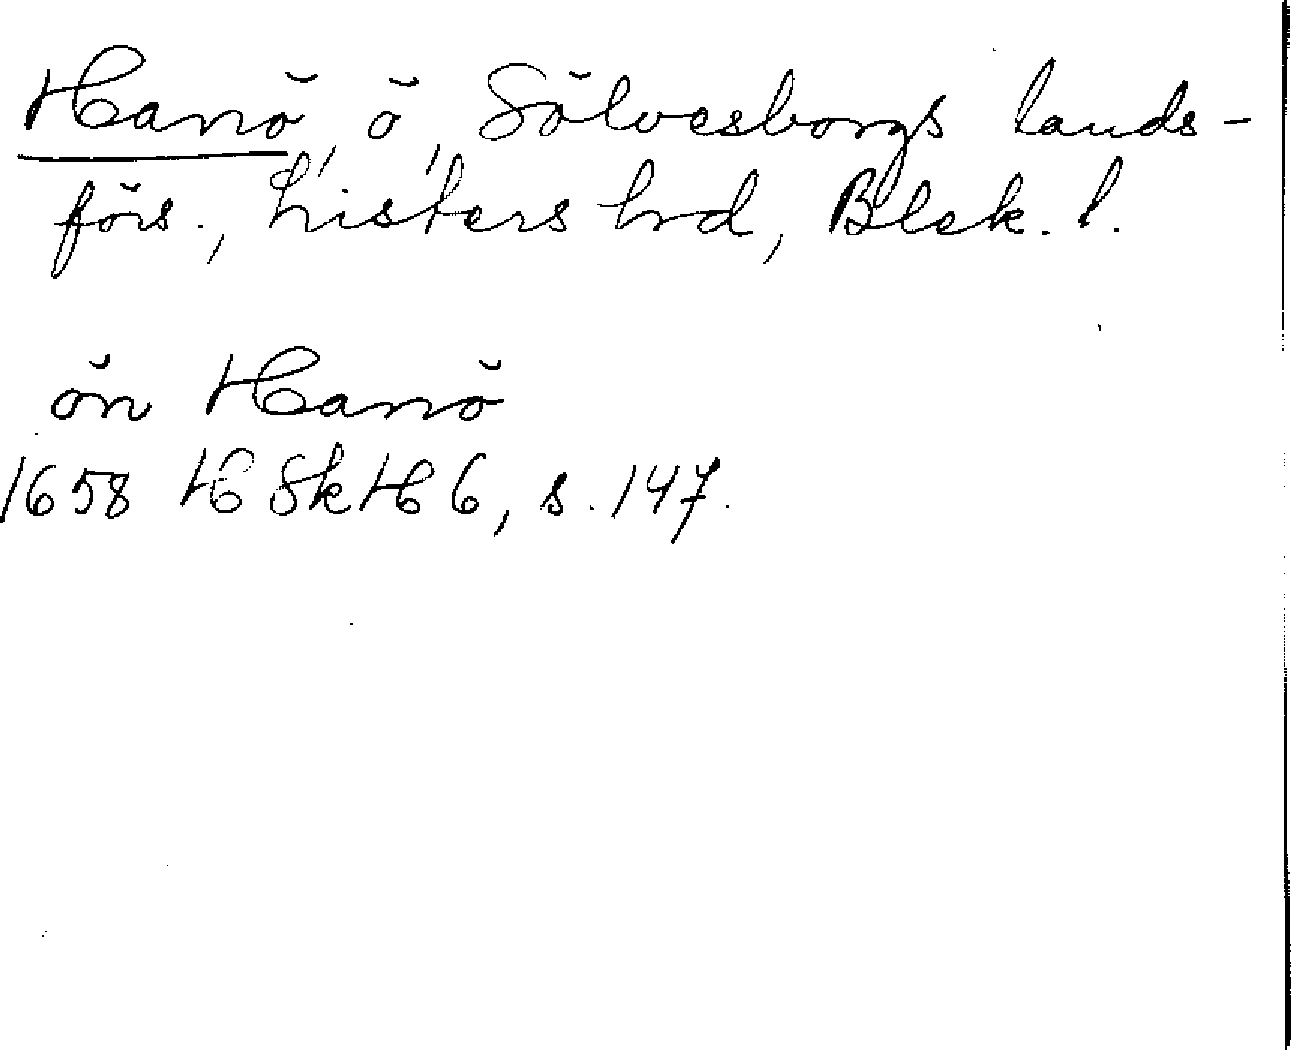 Hanö, ö, Sölvesborgs lands-
förs., Listers hrd, Blek. l.
ön Hanö
1658 HSkH 6, s. 147.